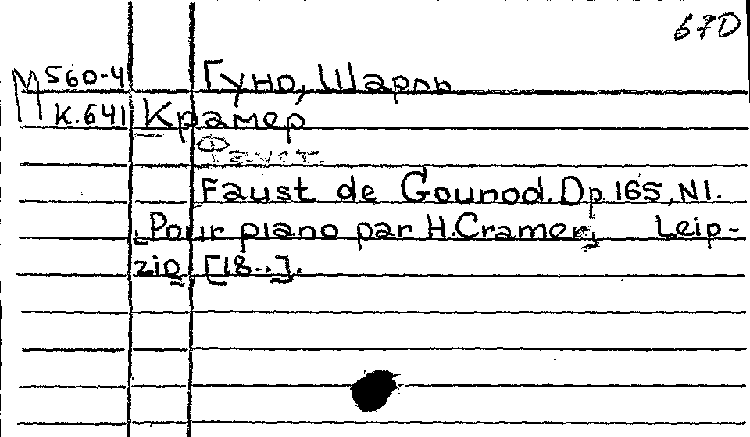 67D
М 560-4 Гуно, Шарль
К.641 Крамер
Фауст
Faust de Gounod. Op 165, N1.
Pour piano par H. Cramer, Leip-
zig, [18..].